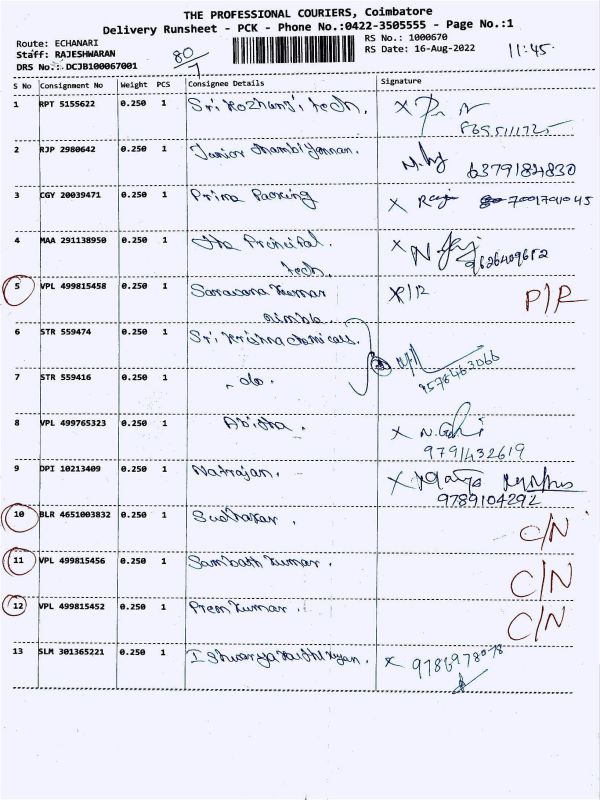 THE PROFESSIONAL COURIERS, Coimbatore
Delivery Runsheet - PCK - Phone No.:0422-3505555 - Page No.:1
Route: ECHANARI RS No.: 1000670
Staff: RAJESHWARAN 80/7 RS Date: 16-Aug-2022 11:45
DRS No.: DCJB100067001
S No Consignment No Weight PCS Consignee Details Signature
1 RPT 5155622 0.250 1 Sri Kozhanji tech. X
2 RJP 2980642 0.250 1 Junior 6379184830
3 CGY 20039471 0.250 1 Prime Packing X 7001701045
4 MAA 291138950 0.250 1 The Principal. X N
tech. 9626409612
5 VPL 499815458 0.250 1 Saravana Kumar X P/R P/R
6 STR 559474 0.250 1 Sri Krishna
9578463066
7 STR 559416 0.250 1 do.
8 VPL 499765323 0.250 1 Abitha. X
9791432619
9 DPI 10213409 0.250 1 Natrajan. X
9789104292
10 BLR 4651003832 0.250 1 Sudhakar. C/N
11 VPL 499815456 0.250 1 Sambath Kumar. C/N
12 VPL 499815452 0.250 1 Prem Kumar. C/N
13 SLM 301365221 0.250 1 X 9786978078